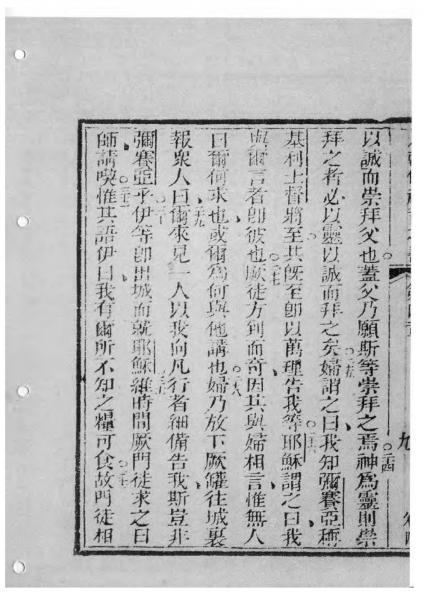 以誠而崇拜父也蓋父乃願斯等崇拜之焉○二四神為靈則崇
拜之者必以靈以誠而拜之矣○二五婦謂之曰我知彌賽亞稱
基利士督將至其旣至卽以萬理告我等○二六耶穌謂之曰我
與爾言者卽彼也○二七厥徒方到而奇因其與婦相言惟無人
曰爾何求也或爾為何與他講也○二八婦乃放下厥罐往城裏
報衆人曰○二九爾來見一人以我向凡行者細備告我斯豈非
彌賽亞乎○三十伊等卽出城而就耶穌○三一維時間厥門徒求之曰
師請喫○三二惟其語伊曰我有爾所不知之糧可食○三三故門徒相
九